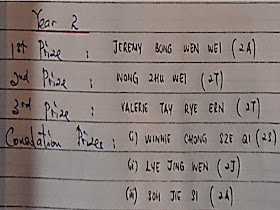 Year 2
1st Prize : JEREMY BONG WEN WEI (2A)
2nd Prize : WONG ZHU WEI (2T)
3rd Prize : VALERIE TAY RYE ERN (2T)
Consolation Prizes : (i) WINNIE CHONG SZE QI (2S)
(ii) LYE JING WEN (2J)
(iii) SOH JIE SI (2A)